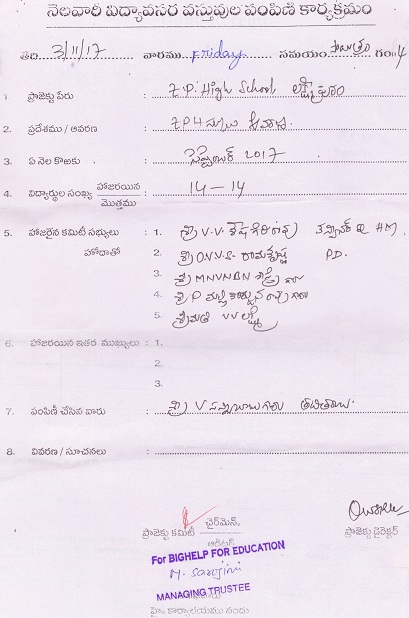 నెలవారి విద్యావసర వస్తువుల పంపిణి కార్యక్రమం
తేది 3/11/17 వారము Friday సమయం సాయంత్రం గం॥ 4
1. ప్రాజెక్టు పేరు : Z.P. High School లక్ష్మీపురం
2. ప్రదేశము / ఆవరణ : ZPH స్కూలు
3. ఏ నెల కొఱకు : సెప్టెంబర్ 2017
4. విద్యార్థుల సంఖ్య హాజరయిన మొత్తము : 14 – 14
5. హాజరైన కమిటీ సభ్యులు హోదాతో : 1. శ్రీ V.V. శేషగిరిరావు HM
2. శ్రీ O.N.V.S. రామకృష్ణ P.D.
3. శ్రీ MNVNBN శాస్త్రి గారు
4. శ్రీ P మల్లికార్జున రావు గారు
5. శ్రీమతి VV లక్ష్మి
6. హాజరయిన ఇతర ముఖ్యులు : 1.
2.
3.
7. పంపిణీ చేసిన వారు : శ్రీ V గారు తదితరులు.
8. వివరణ / సూచనలు :
ప్రాజెక్టు కమిటీ చైర్‌మెన్. ప్రాజెక్టు డైరెక్టర్
ఆడిటర్
For BIGHELP FOR EDUCATION
M. Sarojini
MANAGING TRUSTEE
హైం కార్యాలయము నందు